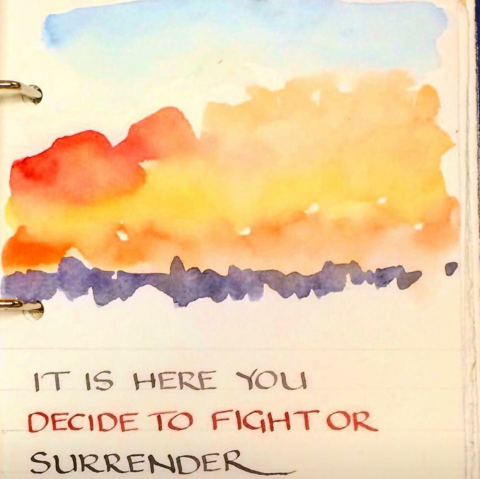 IT IS HERE YOU
DECIDE TO FIGHT OR
SURRENDER